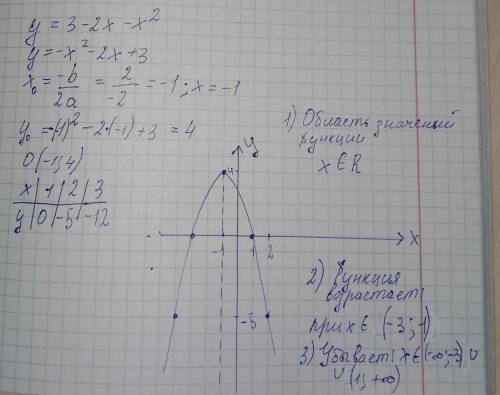 y = 3 - 2x - x²
y = -x² - 2x + 3
x₀ = -b/2a = 2/-2 = -1; x = -1
y₀ = -(1)² - 2·(-1) + 3 = 4
0(-1; 4)
x | 1 | 2 | 3
y | 0 | -5 | -12
1) Область значений
функции
x ∈ R
y
4
-1 1 2 x
-5
2) Функция
возрастает
при x ∈ (-3; 1)
3) Убывает: x ∈ (-∞; -3) ∪
∪ (1; +∞)